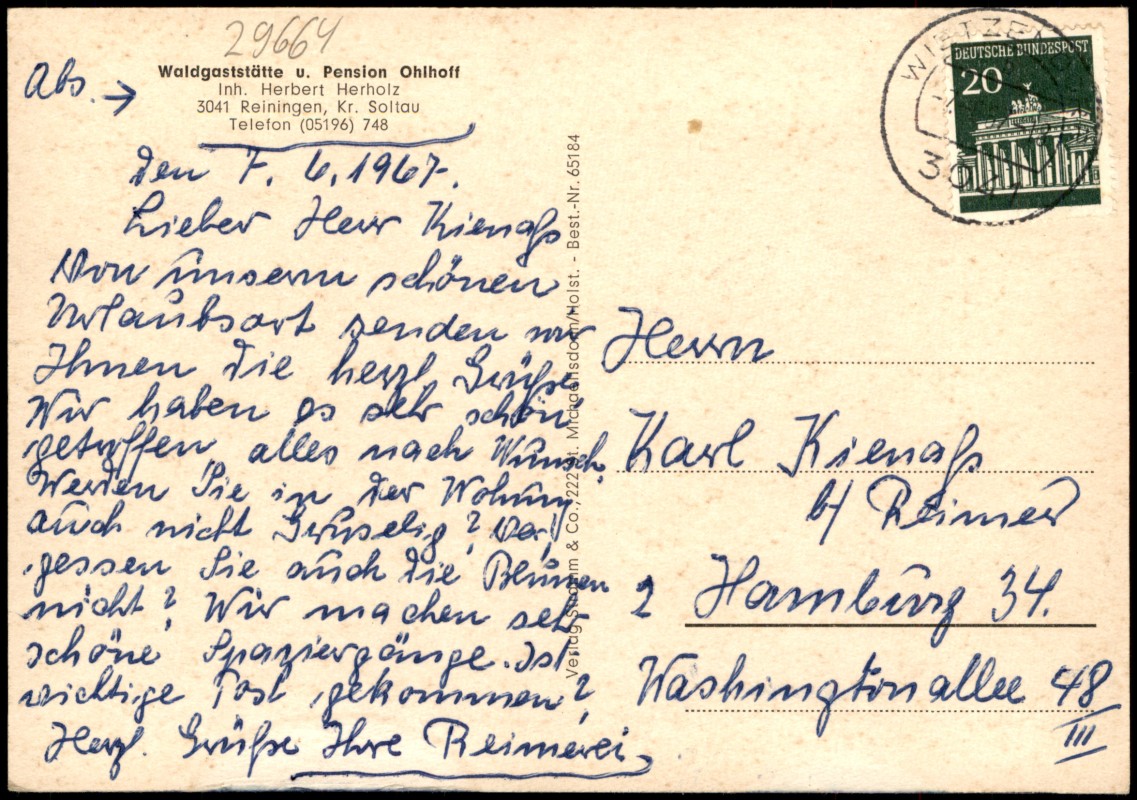 29664
Abs. →
Waldgaststätte u. Pension Ohlhoff
Inh. Herbert Herholz
3041 Reiningen, Kr. Soltau
Telefon (05196) 748
den 7. 6. 1967.
Lieber Herr Kienaß
Von unserm schönen
Urlaubsort senden wir
Ihnen die herzl. Grüße
Wir haben es sehr schön
getroffen, alles nach Wunsch.
Werden Sie in der Wohung
auch nicht Gruselig? Ver,
gessen Sie auch die Blumen
nicht? Wir machen sehr
schöne Spaziergänge. Ist
wichtige Post gekommen?
Herzl. Grüße Ihre Reimerei
Verlag Stramm & Co., 222 St. Michaelisdonn/Holst. - Best.-Nr. 65184
DEUTSCHE BUNDESPOST
20
3041
Herrn
Karl Kienaß
b/ Reimer
2 Hamburg 34.
Washingtonallee 48
III